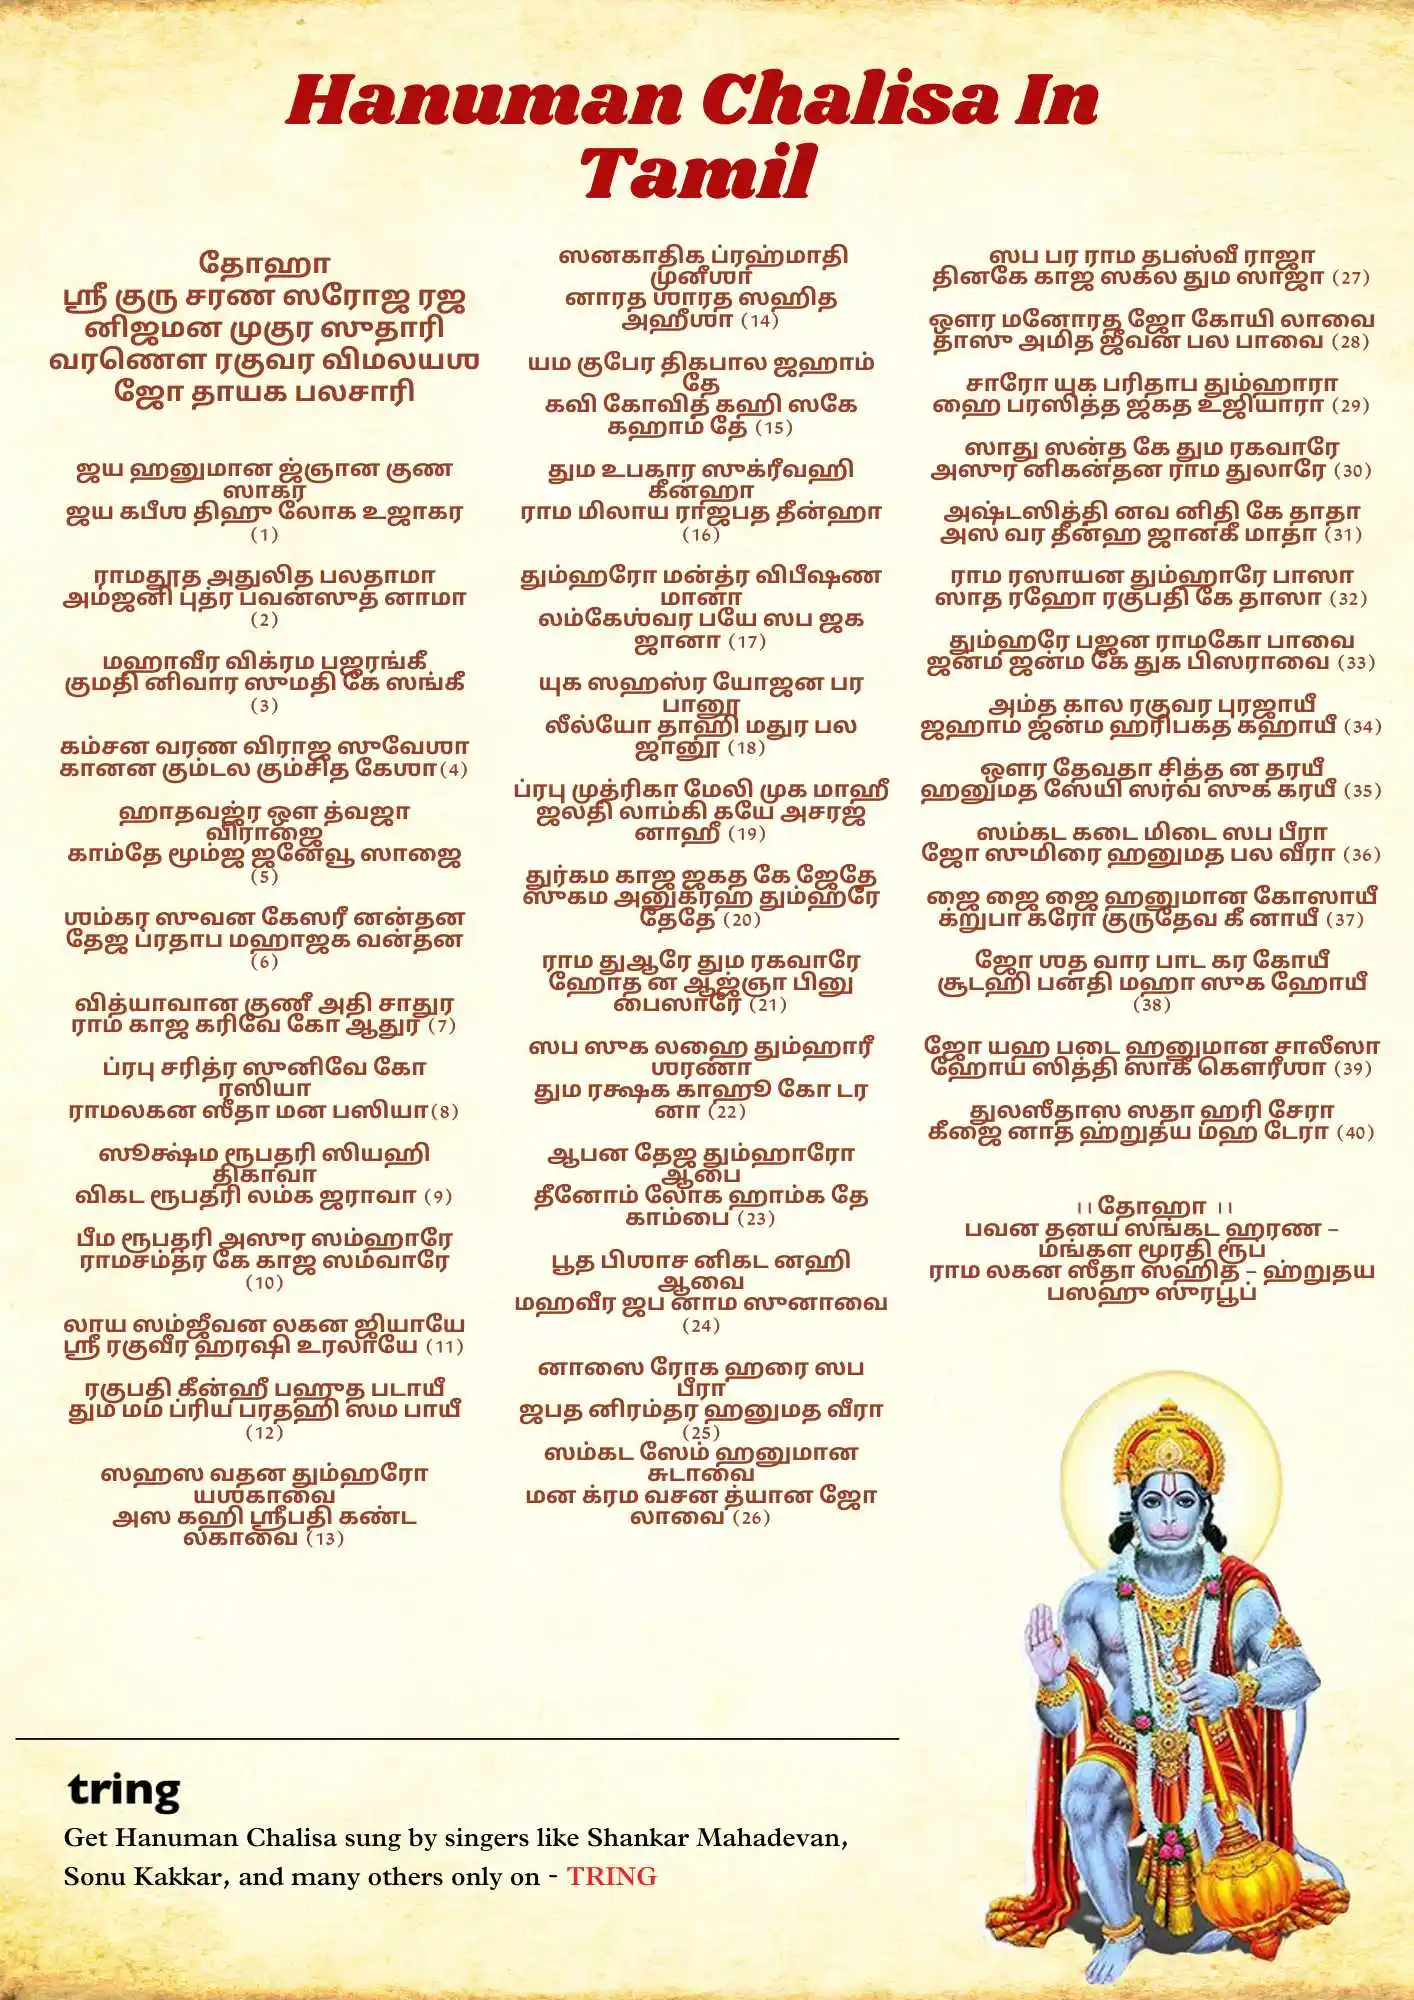 Hanuman Chalisa In
Tamil
தோஹா
ஸ்ரீ குரு சரண ஸரோஜ ரஜ
னிஜமன முகுர ஸுதாரி
வரணௌ ரகுவர விமலயஶ
ஜோ தாயக பலசாரி
ஜய ஹனுமான ஜ்ஞான குண
ஸாகர
ஜய கபீஶ திஹு லோக உஜாகர
(1)
ராமதூத அதுலித பலதாமா
அம்ஜனி புத்ர பவன்ஸுத னாமா
(2)
மஹாவீர விக்ரம பஜரங்கீ
குமதி னிவார ஸுமதி கே ஸங்கீ
(3)
கம்சன வரண விராஜ ஸுவேஶா
கானன கும்டல கும்சித கேஶா(4)
ஹாதவஜ்ர ஔ த்வஜா
விராஜை
காம்தே மூம்ஜ ஜனேவூ ஸாஜை
(5)
ஶம்கர ஸுவன கேஸரீ னன்தன
தேஜ ப்ரதாப மஹாஜக வன்தன
(6)
வித்யாவான குணீ அதி சாதுர
ராம காஜ கரிவே கோ ஆதுர (7)
ப்ரபு சரித்ர ஸுனிவே கோ
ரஸியா
ராமலகன ஸீதா மன பஸியா(8)
ஸூக்ஷ்ம ரூபதரி ஸியஹி
திகாவா
விகட ரூபதரி லம்க ஜராவா (9)
பீம ரூபதரி அஸுர ஸம்ஹாரே
ராமசம்தர கே காஜ ஸம்வாரே
(10)
லாய ஸம்ஜீவன லகன ஜியாயே
ஸ்ரீ ரகுவீர ஹரஷி உரலாயே (11)
ரகுபதி கீன்ஹீ பஹுத படாயீ
தும மம ப்ரிய பரதஹி ஸம பாயீ
(12)
ஸஹஸ வதன தும்ஹரோ
யஶகாவை
அஸ கஹி ஸ்ரீபதி கண்ட
லகாவை (13)
ஸனகாதிக ப்ரஹ்மாதி
முனீஶா
னாரத ஶாரத ஸஹித
அஹீஶா (14)
யம குபேர திகபால ஜஹாம்
தே
கவி கோவித கஹி ஸகே
கஹாம் தே (15)
தும உபகார ஸுக்ரீவஹி
கீன்ஹா
ராம மிலாய ராஜபத தீன்ஹா
(16)
தும்ஹரோ மன்த்ர விபீஷண
மானா
லம்கேஶ்வர பயே ஸப ஜக
ஜானா (17)
யுக ஸஹஸ்ர யோஜன பர
பானூ
லீல்யோ தாஹி மதுர பல
ஜானூ (18)
ப்ரபு முத்ரிகா மேலி முக மாஹீ
ஜலதி லாம்கி கயே அசரஜ
னாஹீ (19)
துர்கம காஜ ஜகத கே ஜேதே
ஸுகம அனுக்ரஹ தும்ஹரே
தேதே (20)
ராம துஆரே தும ரகவாரே
ஹோத ன ஆஜ்ஞா பினு
பைஸாரே (21)
ஸப ஸுக லஹை தும்ஹாரீ
ஶரணா
தும ரக்ஷக காஹூ கோ டர
னா (22)
ஆபன தேஜ தும்ஹாரோ
ஆபை
தீனோம் லோக ஹாம்க தே
காம்பை (23)
பூத பிஶாச னிகட னஹி
ஆவை
மஹவீர ஜப னாம ஸுனாவை
(24)
னாஸை ரோக ஹரை ஸப
பீரா
ஜபத னிரம்தர ஹனுமத வீரா
(25)
ஸம்கட ஸேம் ஹனுமான
சுடாவை
மன க்ரம வசன த்யான ஜோ
லாவை (26)
ஸப பர ராம தபஸ்வீ ராஜா
தினகே காஜ ஸகல தும ஸாஜா (27)
ஔர மனோரத ஜோ கோயி லாவை
தாஸு அமித ஜீவன பல பாவை (28)
சாரோ யுக பரிதாப தும்ஹாரா
ஹை பரஸித்த ஜகத உஜியாரா (29)
ஸாது ஸன்த கே தும ரகவாரே
அஸுர னிகன்தன ராம துலாரே (30)
அஷ்டஸித்தி னவ னிதி கே தாதா
அஸ வர தீன்ஹ ஜானகீ மாதா (31)
ராம ரஸாயன தும்ஹாரே பாஸா
ஸாத ரஹோ ரகுபதி கே தாஸா (32)
தும்ஹரே பஜன ராமகோ பாவை
ஜன்ம ஜன்ம கே துக பிஸராவை (33)
அம்த கால ரகுவர புரஜாயீ
ஜஹாம் ஜன்ம ஹரிபக்த கஹாயீ (34)
ஔர தேவதா சித்த ன தரயீ
ஹனுமத ஸேயி ஸர்வ ஸுக கரயீ (35)
ஸம்கட கடை மிடை ஸப பீரா
ஜோ ஸுமிரை ஹனுமத பல வீரா (36)
ஜை ஜை ஜை ஹனுமான கோஸாயீ
க்றுபா கரோ குருதேவ கீ னாயீ (37)
ஜோ ஶத வார பாட கர கோயீ
சூடஹி பன்தி மஹா ஸுக ஹோயீ
(38)
ஜோ யஹ படை ஹனுமான சாலீஸா
ஹோய ஸித்தி ஸாகீ கௌரீஶா (39)
துலஸீதாஸ ஸதா ஹரி சேரா
கீஜை னாத ஹ்றுதய மஹ டேரா (40)
।। தோஹா ।।
பவன தனய ஸங்கட ஹரண –
மங்கள மூரதி ரூப்
ராம லகன ஸீதா ஸஹித – ஹ்றுதய
பஸஹு ஸுரபூப்
tring
Get Hanuman Chalisa sung by singers like Shankar Mahadevan,
Sonu Kakkar, and many others only on - TRING